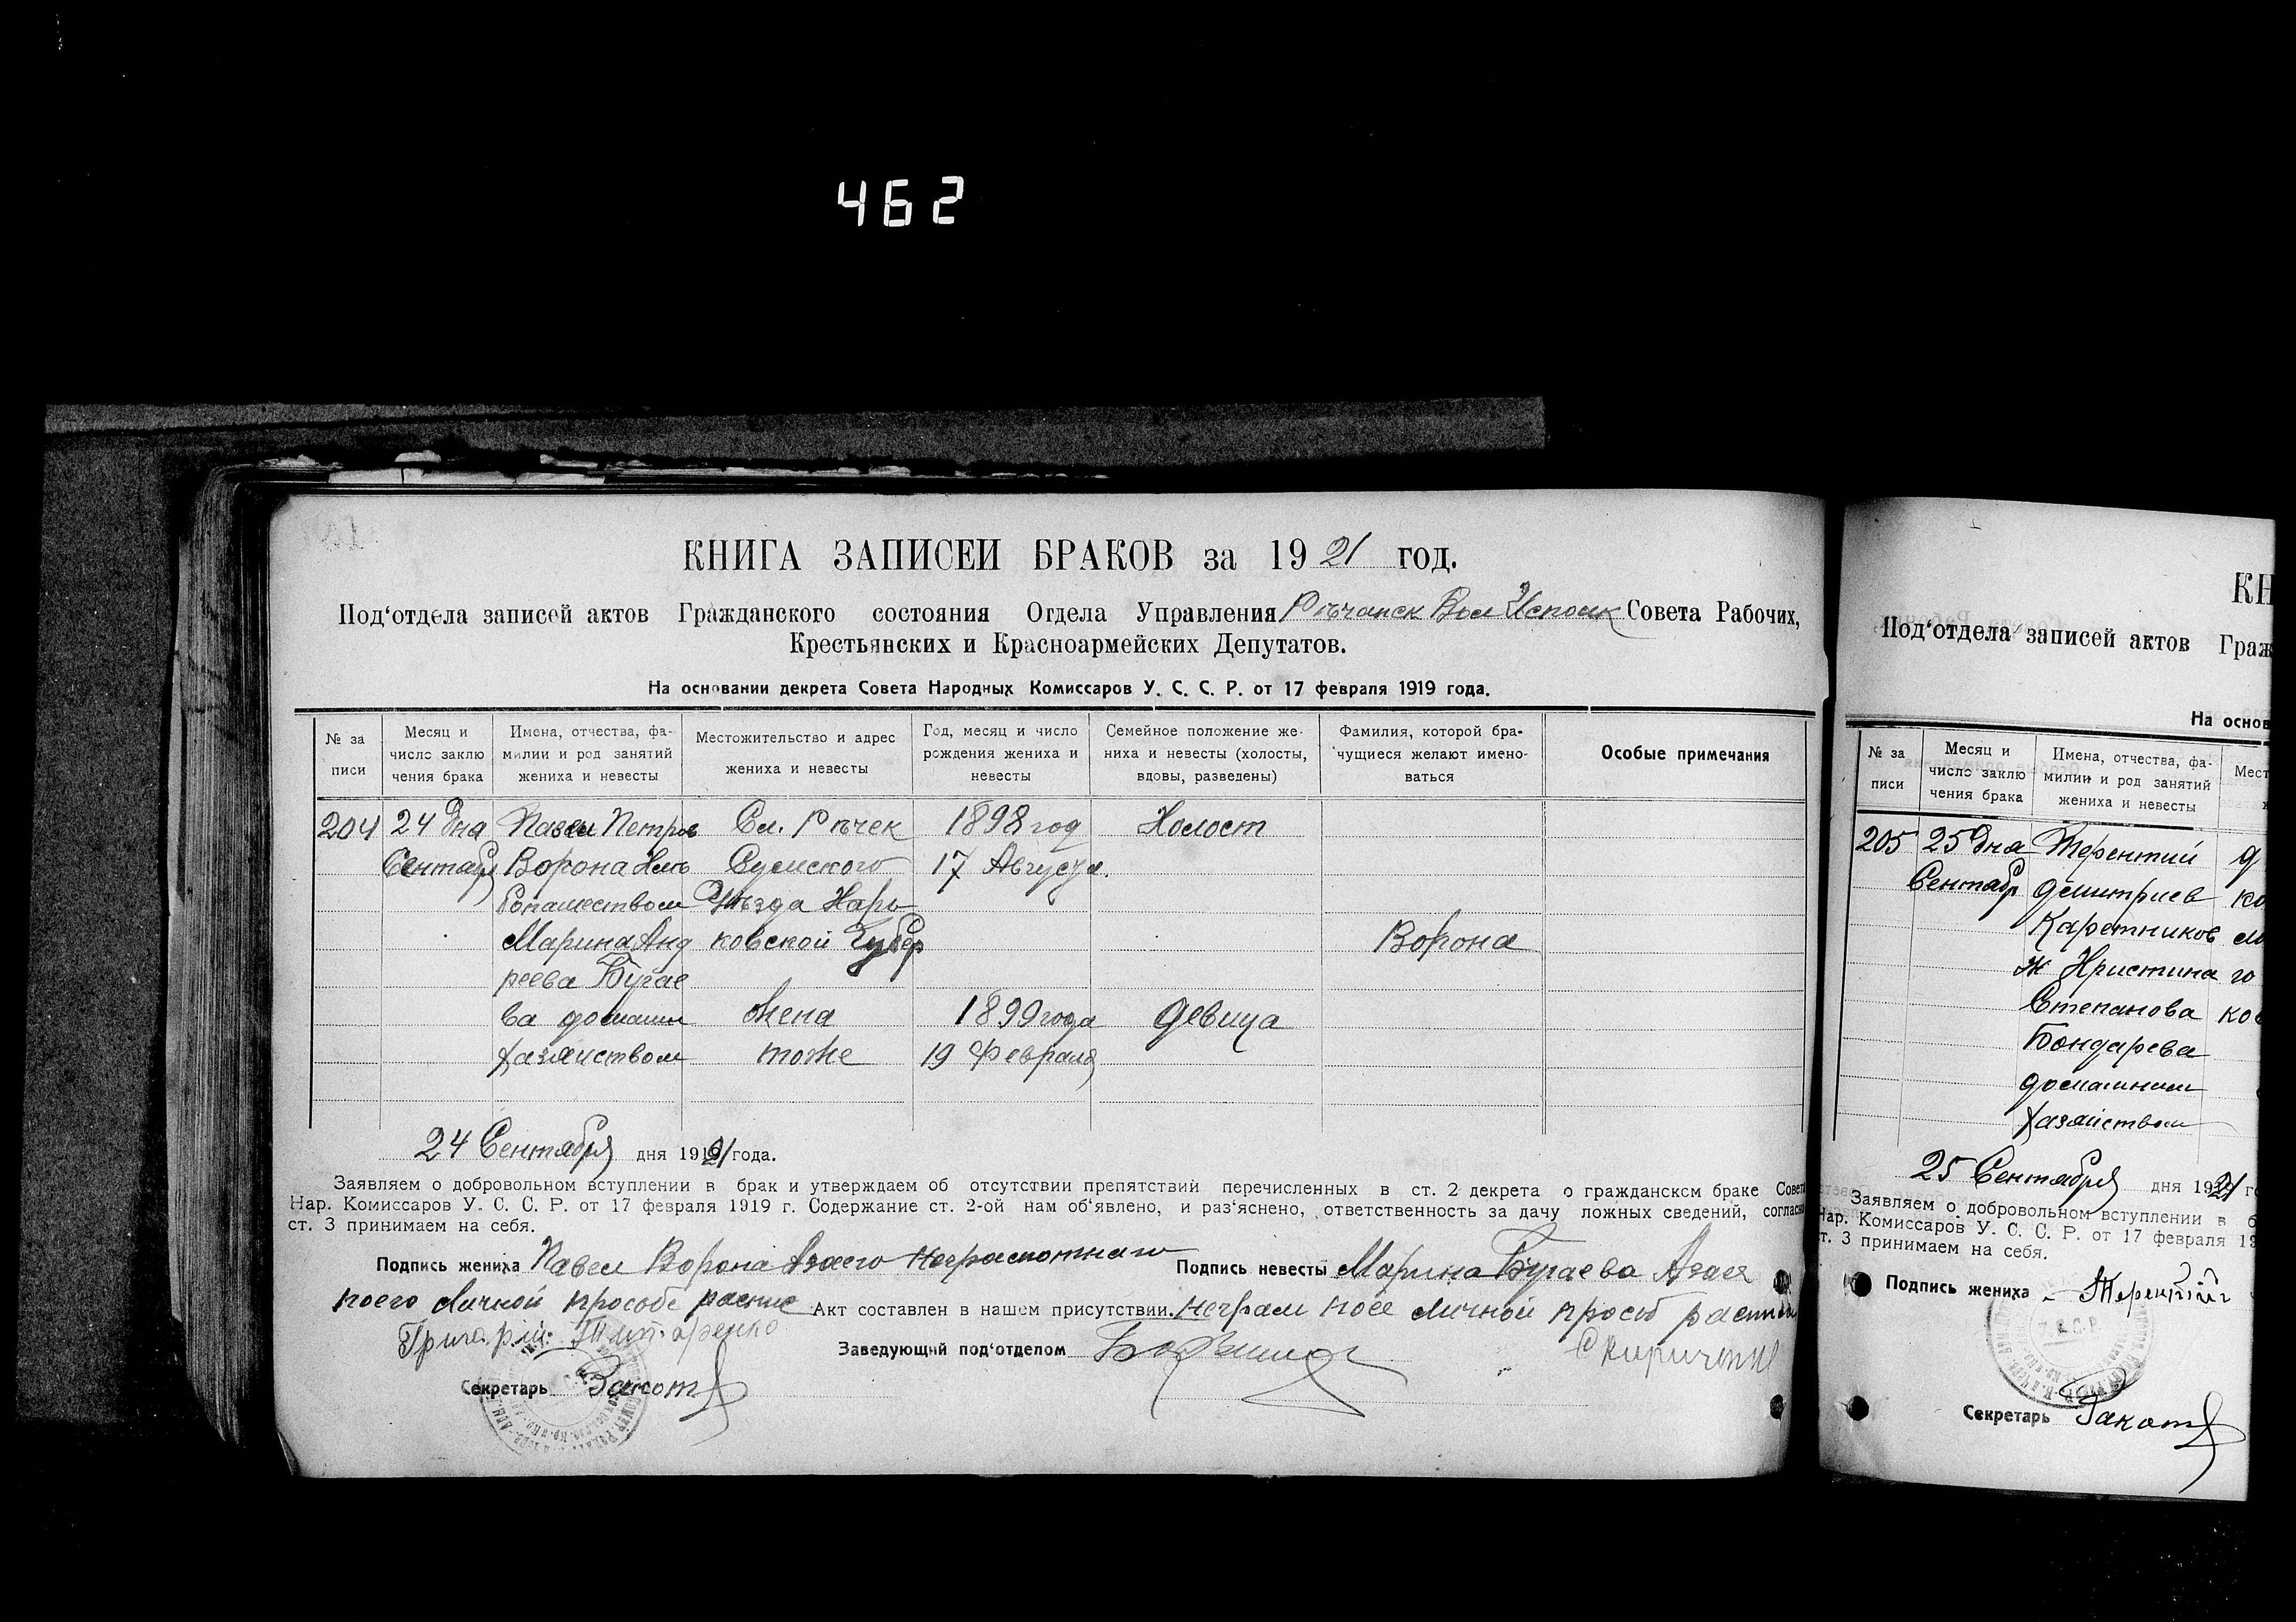 462
КНИГА ЗАПИСЕЙ БРАКОВ за 1921 год.
Под‘отдела записей актов Гражданского состояния Отдела Управления Рѣчанск Вол Исполк Совета Рабочих,
Крестьянских и Красноармейских Депутатов.
На основании декрета Совета Народных Комиссаров У. С. С. Р. от 17 февраля 1919 года.
№ за писи
Месяц и число заклю чения брака
Имена, отчества, фа- милии и род занятий жениха и невесты
Местожительство и адрес жениха и невесты
Год, месяц и число рождения жениха и невесты
Семейное положение же- ниха и невесты (холосты, вдовы, разведены)
Фамилия, которой бра- чущиеся желают имено- ваться
Особые примечания
204 24 дня Павел Петров Сл. Рѣчек 1898 год Холост
Сентябр Ворона Хлѣ Сумского 17 Августа.
бопашеством Уѣзда Харь
Марина Анд ковской Губер Ворона
реева Бугае
ва домашн жена 1899 года девица
хазяйством тоже 19 Февраля
24 Сентября дня 1921 года.
Заявляем о добровольном вступлении в брак и утверждаем об отсутствии препятствий перечисленных в ст. 2 декрета о гражданском браке Совета
Нар. Комиссаров У. С. С. Р. от 17 февраля 1919 г. Содержание ст. 2-ой нам об‘явлено, и раз‘яснено, ответственность за дачу ложных сведений, согласно
ст. 3 принимаем на себя.
Подпись жениха Павел Ворона Азаего неграмотнаго
Подпись невесты Марина Бугаева Азаея
поего Личной прособе распис
Акт составлен в нашем присутствии. неграм поее личной просьб распис
Григорий
Заведующий под‘отделом
Секретарь
КН
Под‘отдела записей актов Граж
На основ
№ за писи
Месяц и число заклю чения брака
Имена, отчества, фа- милии и род занятий жениха и невесты
Мест
205 25 дня Терентий д
Сентябр дмитриев ко
Каретников
ж Христина го
Степанова ков
Бондарева
домашним
хазяйством
25 Сентября дня 1921 г
Заявляем о добровольном вступлении в б
Нар. Комиссаров У. С. С. Р. от 17 февраля 19
ст. 3 принимаем на себя.
Подпись жениха Терентий
Секретарь